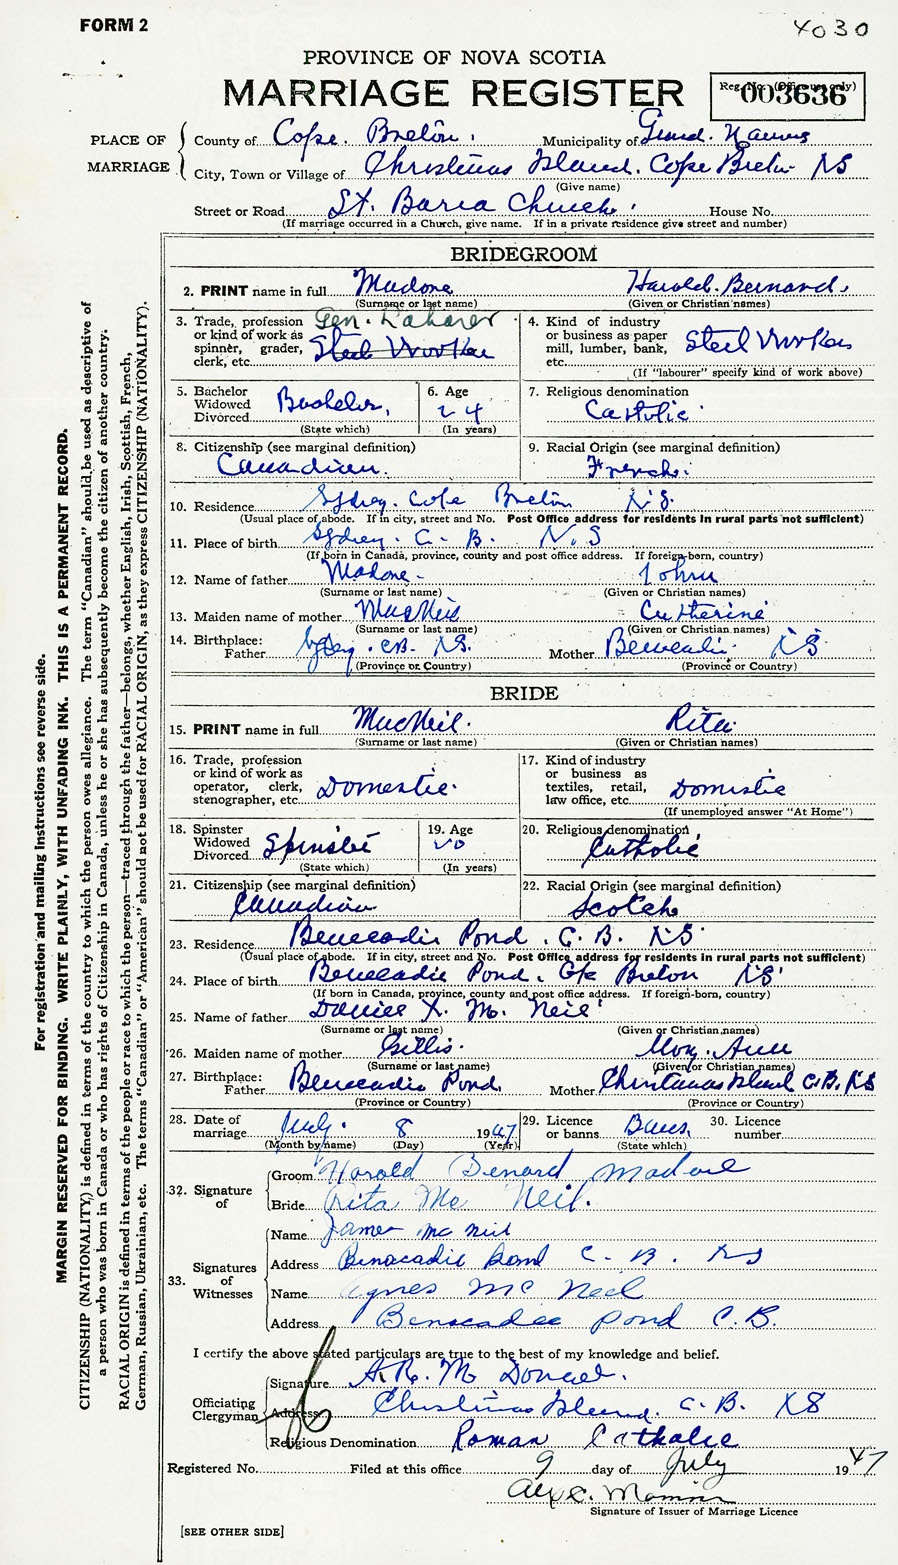 FORM 2
4030
PROVINCE OF NOVA SCOTIA
MARRIAGE REGISTER
Reg. No. (Office use only)
003636
PLACE OF MARRIAGE
County of Cape Breton. Municipality of Grand Narrows
City, Town or Village of Christmas Island. Cape Breton NS
(Give name)
Street or Road St. Barra Church. House No.
(If marriage occurred in a Church, give name. If in a private residence give street and number)
BRIDEGROOM
2. PRINT name in full Madore Harold. Bernard.
(Surname or last name) (Given or Christian names)
3. Trade, profession or kind of work as spinner, grader, clerk, etc. Gen. Laborer Steel Worker
4. Kind of industry or business as paper mill, lumber, bank, etc. Steel Workers
(If "labourer" specify kind of work above)
5. Bachelor Widowed Divorced Bachelor.
(State which)
6. Age 24
(In years)
7. Religious denomination Catholic
8. Citizenship (see marginal definition) Canadian.
9. Racial Origin (see marginal definition) French.
10. Residence Sydney. Cape Breton N.S.
(Usual place of abode. If in city, street and No. Post Office address for residents in rural parts not sufficient)
11. Place of birth Sydney. C. B. N. S
(If born in Canada, province, county and post office address. If foreign-born, country)
12. Name of father Madore. John
(Surname or last name) (Given or Christian names)
13. Maiden name of mother MacNeil Catherine
(Surname or last name) (Given or Christian names)
14. Birthplace: Father Sydney. CB. NS. Mother Benacadie NS
(Province or Country) (Province or Country)
BRIDE
15. PRINT name in full MacNeil. Rita
(Surname or last name) (Given or Christian names)
16. Trade, profession or kind of work as operator, clerk, stenographer, etc. Domestic.
17. Kind of industry or business as textiles, retail, law office, etc. Domestic
(If unemployed answer "At Home")
18. Spinster Widowed Divorced Spinster
(State which)
19. Age 20
(In years)
20. Religious denomination Catholic
21. Citizenship (see marginal definition) Canadian
22. Racial Origin (see marginal definition) Scotch
23. Residence Benacadie Pond. C. B. NS
(Usual place of abode. If in city, street and No. Post Office address for residents in rural parts not sufficient)
24. Place of birth Benacadie Pond. Cape Breton NS
(If born in Canada, province, county and post office address. If foreign-born, country)
25. Name of father Daniel X. Mc Neil
(Surname or last name) (Given or Christian names)
26. Maiden name of mother Gillis. Mary. Ann
(Surname or last name) (Given or Christian names)
27. Birthplace: Father Benacadie Pond. Mother Christmas Island C.B. NS
(Province or Country) (Province or Country)
28. Date of marriage July. 8 1947
(Month by name) (Day) (Year)
29. Licence or banns Banns.
(State which)
30. Licence number
32. Signature of
Groom Harold Benard Madore
Bride Rita Mc Neil.
33. Signatures of Witnesses
Name James Mc Neil
Address Benacadie Pond C. B. NS
Name Agnes Mc Neil
Address Benacadie Pond C. B.
I certify the above stated particulars are true to the best of my knowledge and belief.
Officiating Clergyman
Signature A. R. Mc Donald.
Address Christmas Island. C. B. NS
Religious Denomination Roman Catholic
Registered No. Filed at this office 9 day of July 1947
Alex
Signature of Issuer of Marriage Licence
[SEE OTHER SIDE]
For registration and mailing instructions see reverse side.
MARGIN RESERVED FOR BINDING. WRITE PLAINLY, WITH UNFADING INK. THIS IS A PERMANENT RECORD.
CITIZENSHIP (NATIONALITY) is defined in terms of the country to which the person owes allegiance. The term "Canadian" should be used as descriptive of
a person who was born in Canada or who has rights of Citizenship in Canada, unless he or she has subsequently become the citizen of another country.
RACIAL ORIGIN is defined in terms of the people or race to which the person—traced through the father—belongs, whether English, Irish, Scottish, French,
German, Russian, Ukrainian, etc. The terms "Canadian" or "American" should not be used for RACIAL ORIGIN, as they express CITIZENSHIP (NATIONALITY).